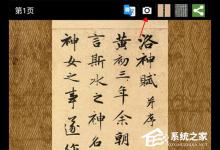 第1页
洛神賦 并序
黄初三年余朝
言斯水之神名
神女之事遂作
系统之家